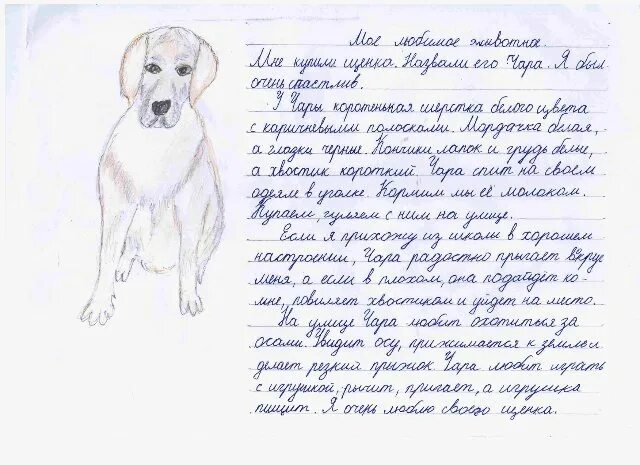 Мое любимое животное.
Мне купили щенка. Назвали его Чара. Я был
очень счастлив.
У Чары коротенькая шерстка белого цвета
с каричневыми полосками. Мордачка белая,
а глазки черные. Кончики лапок и грудь белые,
а хвостик короткий. Чара спит на своем
одеяле в уголке. Кормим мы её молоком.
Купаем, гуляем с ним на улице.
Если я прихожу из школы в хорошем
настроении, Чара радостно прыгает вкруг
меня, а если в плохом, она подайдёт ко-
мне, повиляет хвостиком и уйдет на место.
На улице Чара любит охотиться за
осами. Увидит осу, прижимается к земле и
делает резкий прыжок. Чара любит играть
с игрушкой, рычит, прыгает, а игрушка
пищит. Я очень люблю своего щенка.